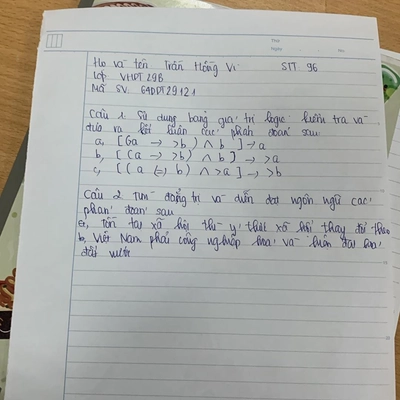 Họ và tên Trần Hồng Vi STT 96
Lớp VHPT 29B
Mã SV. 64DDT29121
Câu 1. Sử dụng bảng giá trị logic kiểm tra và
đưa ra kết luận các phán đoán sau
a, [(a → >b) ∧ b] → a
b, [(a → >b) ∧ b] → >a
c, [(a (=) b) ∧ >a] → >b
Câu 2 Tìm đẳng trị và diễn đạt ngôn ngữ các
phán đoán sau
a, Tồn tại xã hội thì ý thức xã hội thay đổi theo
b, Việt Nam phải công nghiệp hóa và hiện đại hóa
đất nước